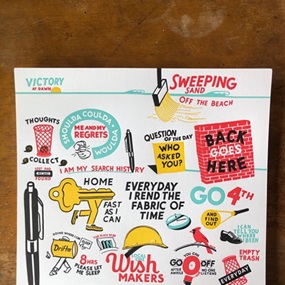 VICTORY
AT DAWN
SWEEPING
SAND
OFF THE BEACH
THOUGHTS
COLLECT
SHOULDA COULDA
WOULDA
ME AND MY
REGRETS
QUESTION
OF THE DAY
WHO
ASKED
YOU?
BACK
GOES
HERE
I AM MY SEARCH HISTORY
HOME
FAST
AS I
CAN
EVERYDAY
I REND THE
FABRIC OF
TIME
GO 4TH
AND
FIND OUT
I CAN
TELL YOU
WHERE
BEEN
8HRS
PLEASE LET
ME SLEEP
Wish
MAKERS
GO
OFF
NO ONE
LISTENS
EMPTY
TRASH
EVERYDAY